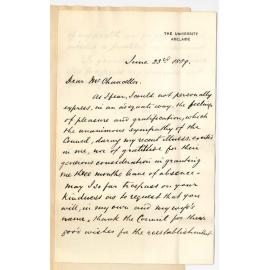 THE UNIVERSITY
ADELAIDE
June 23rd 1889.
Dear Mr Chancellor
As I fear, I could not personally
express, in an adequate way, the feelings
of pleasure and gratification, which
the unanimous sympathy of the
Council, during my recent illness, excites
in me, nor of gratitude for their
generous consideration in granting
me three months leave of absence -
may I so far trespass on your
kindness as to request that you
will, in my own and my wife's
name, thank the Council for their
good wishes for the reestablishment